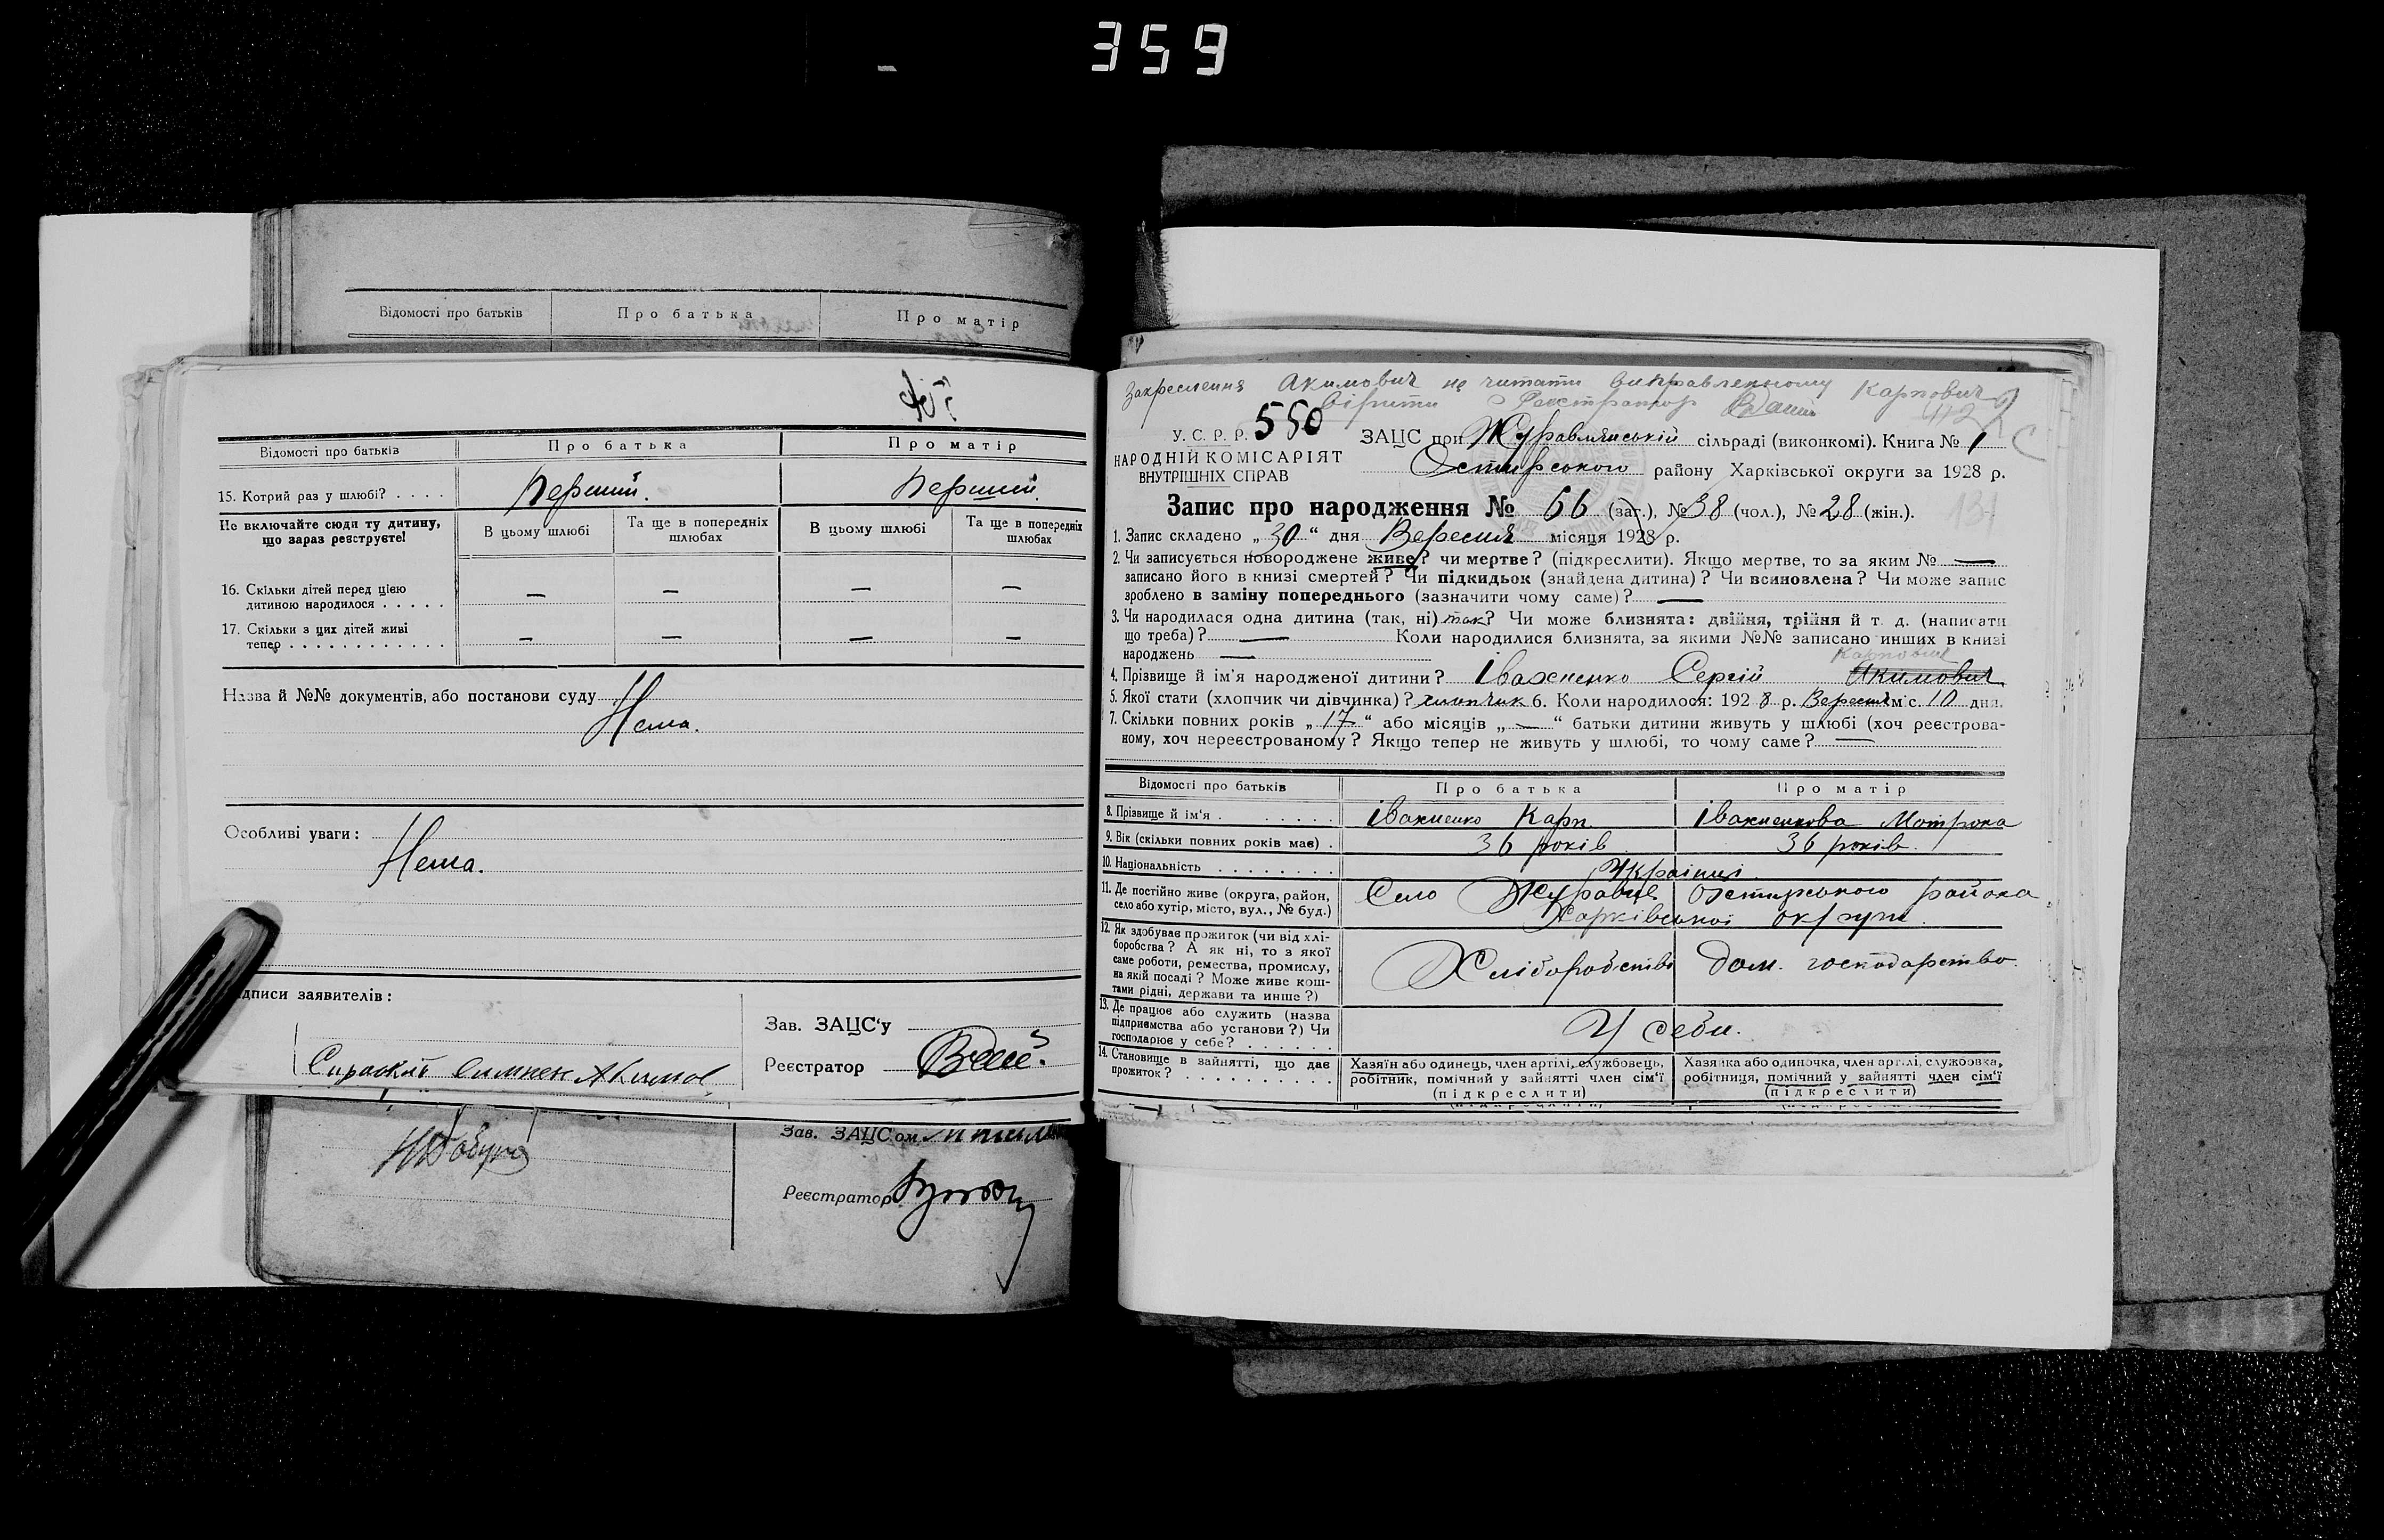 359
Відомості про батьків
Про батька
Про матір
Відомості про батьків
Про батька
Про матір
15. Котрий раз у шлюбі? . . . .
Перший.
Перший.
Не включайте сюди ту дитину, що зараз реєструєте!
В цьому шлюбі
Та ще в попередніх шлюбах
В цьому шлюбі
Та ще в попередніх шлюбах
16. Скільки дітей перед цією
дитиною народилося . . . . .
— — — —
17. Скільки з цих дітей живі
тепер . . . . . . . . . . . .
— — — —
Назва й №№ документів, або постанови суду
Нема.
Особливі уваги:
Нема.
дписи заявителів:
Зав. ЗАЦС‘у
Реєстратор
Зав. ЗАЦС ом
Реєстратор
Закреслення Акимович не читати виправленному Карпович
вірити Реєстратор
У. С. Р. Р. 550
НАРОДНІЙ КОМІСАРІЯТ
ВНУТРІШНІХ СПРАВ
ЗАЦС при Журавлянській сільраді (виконкомі). Книга № 1
району Харківської округи за 1928 р.
Запис про народження № 66 (заг.), № 38 (чол.), № 28 (жін.).
1. Запис складено „ 30 “ дня Вересня місяця 1928 р.
2. Чи записується новороджене живе? чи мертве? (підкреслити). Якщо мертве, то за яким № —
записано його в книзі смертей? Чи підкидьок (знайдена дитина)? Чи всиновлена? Чи може запис
зроблено в заміну попереднього (зазначити чому саме)? —
3. Чи народилася одна дитина (так, ні) так? Чи може близнята: двійня, трійня й т. д. (написати
що треба)? — Коли народилися близнята, за якими №№ записано инших в книзі
народжень —
Карпович
4. Прізвище й ім‘я народженої дитини? Івахненко Сергій Акимович
5. Якої стати (хлопчик чи дівчинка)? хлопчик 6. Коли народилося: 1928 р. Вересня міс. 10 дня.
7. Скільки повних років „ 17 “ або місяців „ — “ батьки дитини живуть у шлюбі (хоч реєстрова-
ному, хоч нереєстрованому? Якщо тепер не живуть у шлюбі, то чому саме? —
Відомості про батьків
Про батька
Про матір
8. Прізвище й ім‘я . . . . . .
Івахненко Карп
Івахненкова Мотрона
9. Вік (скільки повних років має) .
36 років
36 років.
10. Національність . . . . . . . .
Українці.
11. Де постійно живе (округа, район,
село або хутір, місто, вул., № буд.)
Село Журавце района
Харківської округи.
12. Як здобуває прожиток (чи від хлі-
боробства? А як ні, то з якої
саме роботи, ремества, промислу,
на якій посаді? Може живе кош-
тами рідні, держави та инше?)
Хліборобство
Дом. господарство.
13. Де працює або служить (назва
підприємства або установи?) Чи
господарює у себе? . . . . . .
У себи.
14. Становище в зайнятті, що дає
прожиток? . . . . . . . . . . .
Хазяїн або одинець, член артілі, службовець,
робітник, помічний у зайнятті член сім‘ї
(підкреслити)
Хазяїка або одиночка, член артілі, службовка,
робітниця, помічний у зайнятті член сім‘ї
(підкреслити)